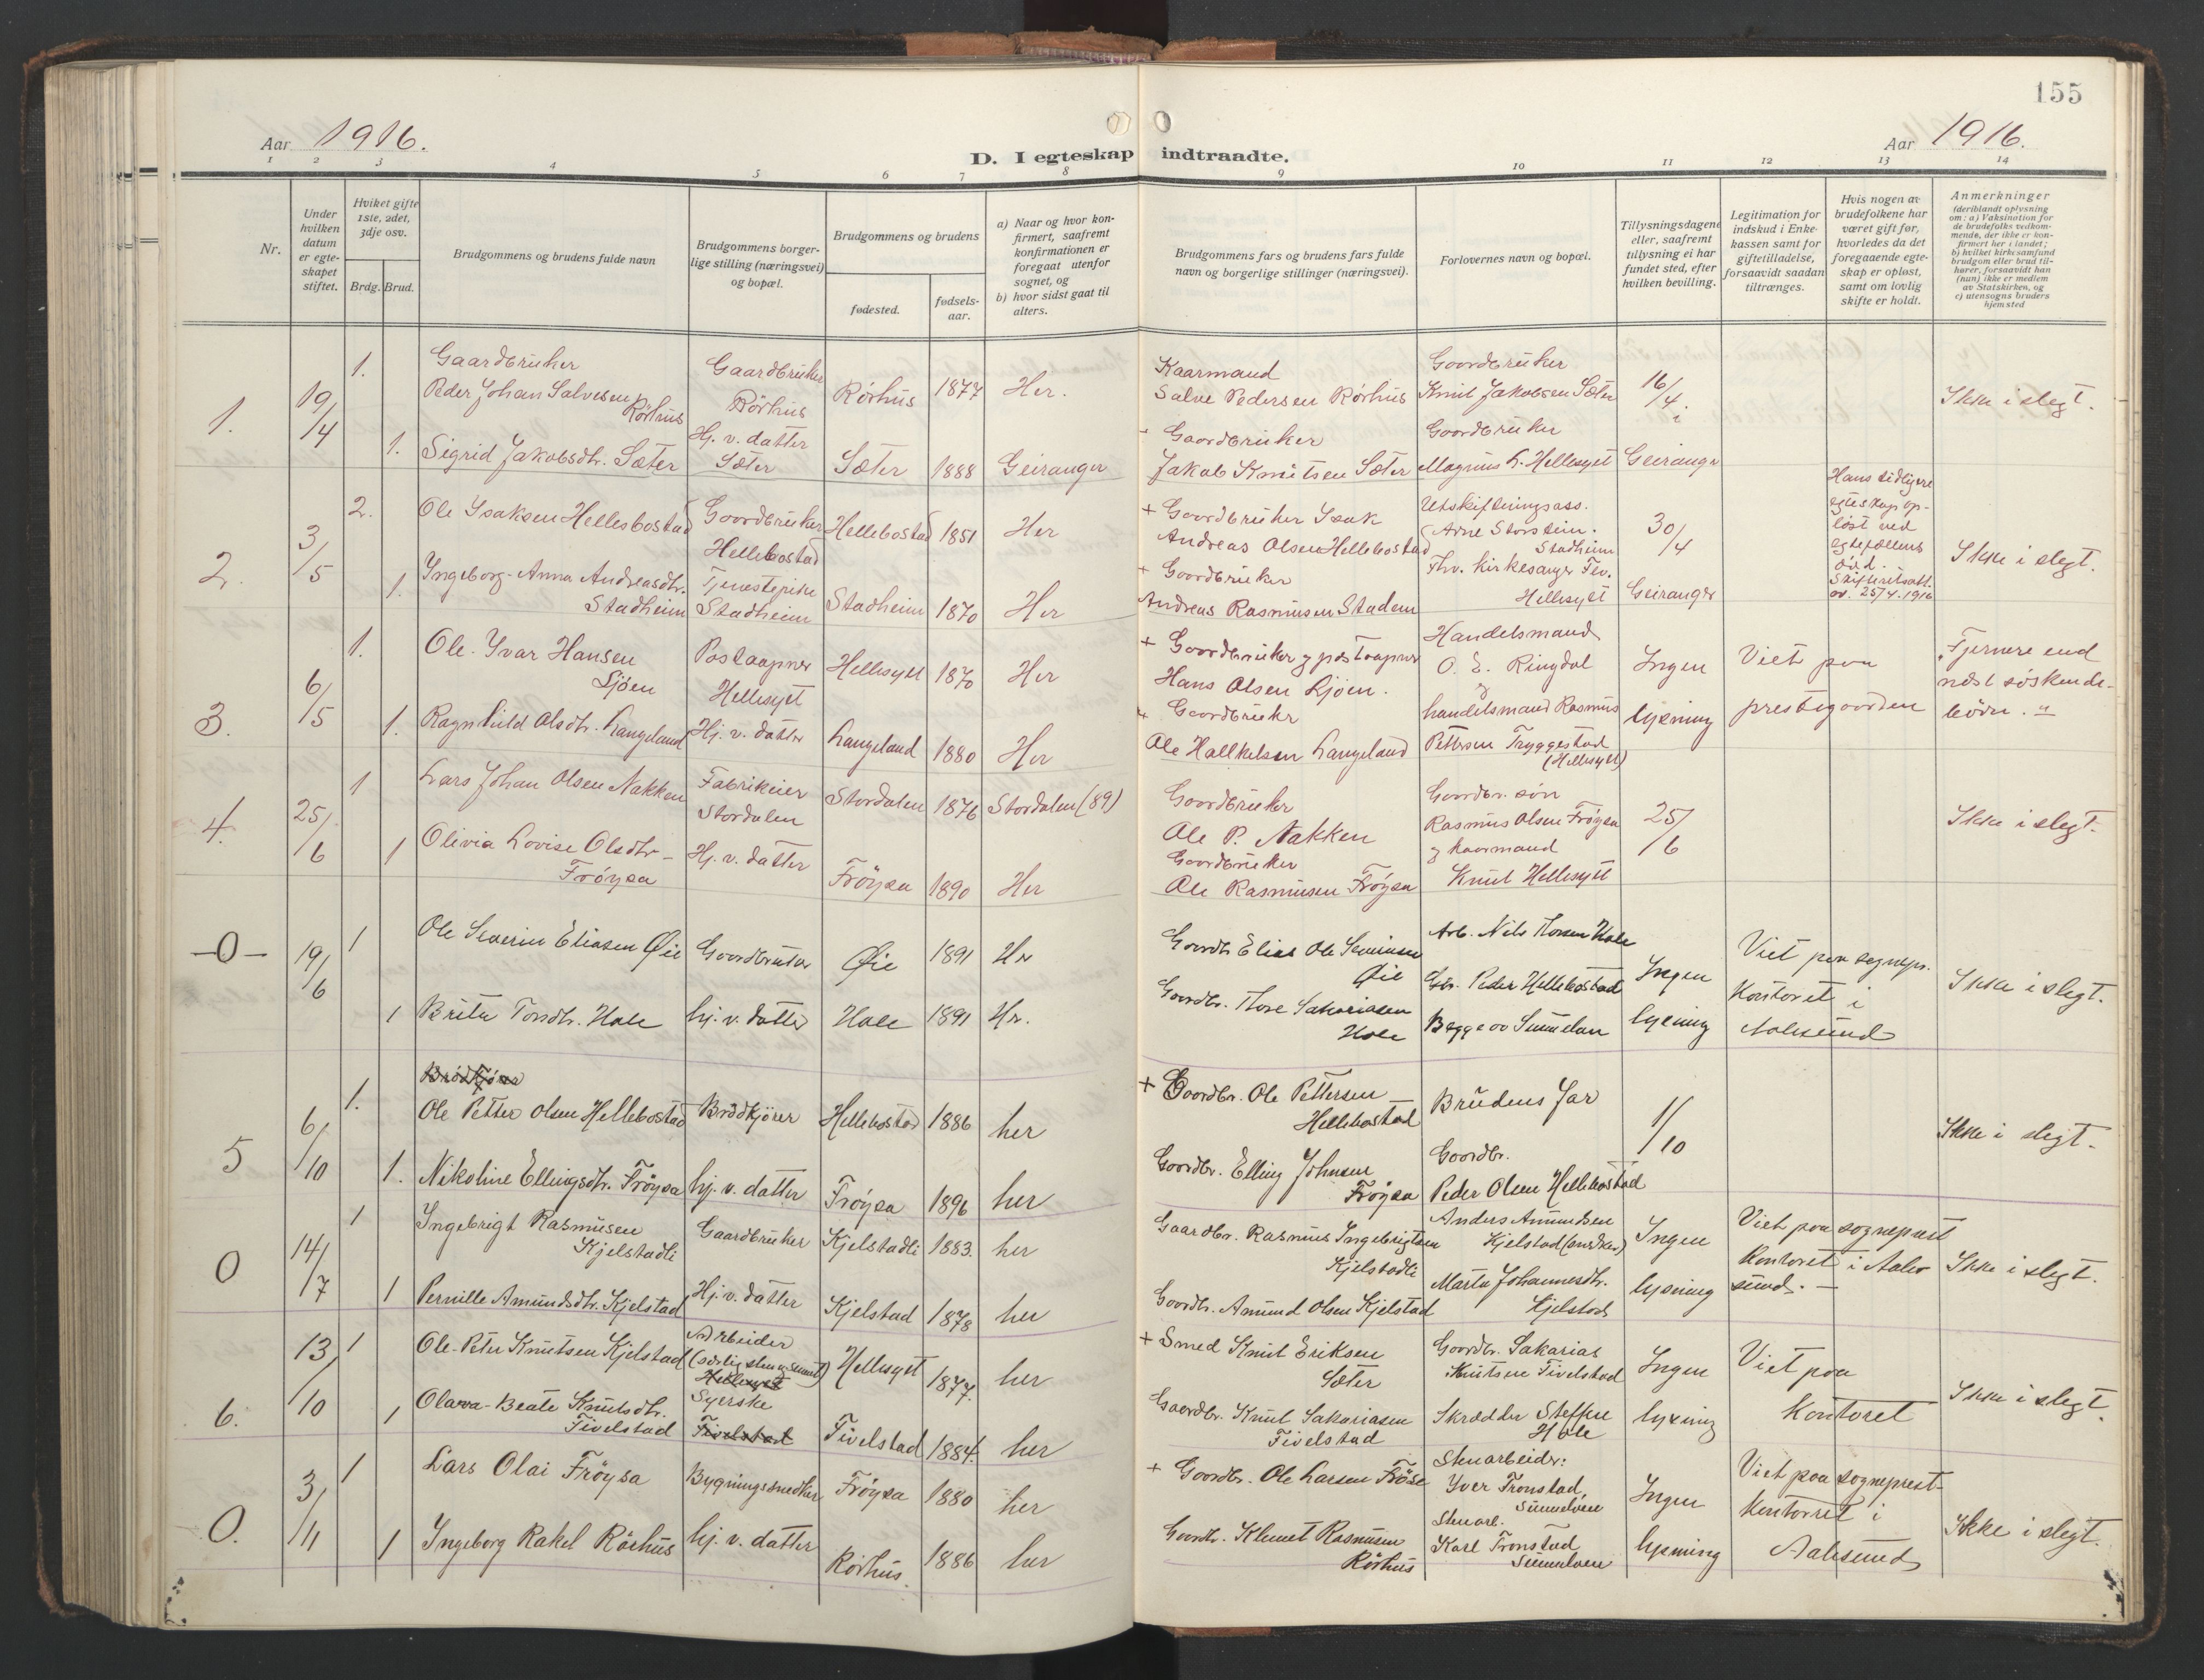 155
Aar 1916.
D. I egteskap indtraadte.
Aar 1916.
1 2 3 4 5 6 7 8 9 10 11 12 13 14
Nr.
Under hvilken datum er egteskapet stiftet.
Hviket gifte 1ste, 2det, 3dje osv.
Brdg. Brud.
Brudgommens og brudens fulde navn
Brudgommens borgerlige stilling (næringsvei) og bopæl.
Brudgommens og brudens
fødested.
fødselsaar.
a) Naar og hvor konfirmert, saafremt konfirmationen er foregaat utenfor sognet, og
b) hvor sidst gaat til alters.
Brudgommens fars og brudens fars fulde navn og borgerlige stillinger (næringsvei).
Forlovernes navn og bopæl.
Tillysningsdagene eller, saafremt tillysning ei har fundet sted, efter hvilken bevilling.
Legitimation for indskud i Enkekassen samt for giftetilladelse, forsaavidt saadan tiltrænges.
Hvis nogen av brudefolkene har været gift før, hvorledes da det foregaaende egteskap er opløst, samt om lovlig skifte er holdt.
Anmerkninger
(deriblandt oplysning om: a) Vaksination for de brudefolks vedkommende, der ikke er konfirmert her i landet; b) hvilket kirkesamfund brudgom eller brud tilhører, forsaavidt han (hun) ikke er medlem av Statskirken, og c) utensogns bruders hjemsted
1. 19/4 1. Gaardbruker
Peder Johan Salvesen Rörhus
Gaardbruker Rörhus
Rörhus 1877 Her.
Kaarmand
Salve Pedersen Rörhus
Goordbruker
Knut Jakobsen Sæter
16/4 i
Ikke i slegt.
1. Sigrid Jakobsdtr. Sæter
Hj. v. datter
Sæter
Sæter 1888 Geiranger
Goordbruker
Jakob Knutsen Sæter
Goordbruker
Magnus L. Hellesylt
Geiranger
2. 3/5 2. Ole Isaksen Hellesbostad
Goordbruker
Hellebostad
Hellebostad 1851 Her
+ Goordbruker Isak
Andreas Olsen Hellebostad
Utskiftningsass.
Arne Storstein.
Stadheim
30/4
Hans tidligere
egteskap op-
løst ved
egtefællens
død.
Skifteretsatt.
av. 25/4. 1916
Ikke i slegt.
1. Ingeborg-Anna Andreasdtr.
Stadheim
Tjenestepike
Stadheim
Stadheim 1870 Her
+ Goordbruker
Andreas Rasmusen Stadem
Fhv. kirkesanger
Hellesylt
Geiranger
3. 6/5 1. Ole-Ivar Hansen
Ljöen
Postaapner
Hellesylt
Hellesylt 1870 Her
+ Goordbruker og postaapner
Hans Olsen Ljöen.
Handelsmand
O. E. Ringdal
og
Ingen
Viet paa
Fjernere end
næst söskende-
börn.
1. Ragnhild Olsdtr. Langeland
Hj. v. datter
Langeland 1880 Her
+ Goordbruker
Ole Hallkelsen Langeland
handelsmand Rasmus
Pettersen Tryggestad
(Hellesylt)
lysning
prestegaarden
4. 25/6 1 Lars Johan Olsen Nakken
Fabrikeier
Stordalen
Stordalen 1876 Stordalen (89)
Goordbruker
Ole P. Nakken
Goordbr. sön
Rasmus Olsen Fröysa
25/6
Ikke i slegt.
1 Olivia Lovise Olsdtr-
Fröysa
Hj. v. datter
Fröysa 1890 Her
Goordbruker
Ole Rasmusen Fröysa
og kaarmand
Knut Hellesylt
-0- 19/6 1 Ole Severin Eliasen Øie
Goordbruker
Øie 1891 Her
Goordb. Elias Ole Severinsen
Øie
Arb. Nils Toresen Hole
Gbr. Peder Hellebostad
Ingen
Viet paa sognepr.
Kontoret i
Ikke i slegt.
1 Brita Torsdtr. Hole
hj. v. datter
Hole 1891 Her.
Goordbr. Tore Sakariasen
Hole
Begge av Sunnelven
lysning
Aalesund
5 6/10 1. Brödkjörer
Ole Petter Olsen Hellebostad
Brödkjörer
Hellebostad 1886 her
+ Goordbr. Ole Pettersen
Hellebostad
Brudens far
1/10
Ikke i slegt.
1. Nikoline Ellingsdtr. Fröysa
hj. v. datter
Fröysa 1896 her
Goordbr. Elling Johnsen
Fröysa
Goordbr.
Peder Olsen Hellebostad
0 14/7 1 Ingebrigt Rasmusen
Kjelstadli
Gaardbruker
Kjelstadli 1883. her
Gaardbr. Rasmus Ingebrigtsen
Kjelstadli
Anders Amundsen
Kjelstad
Ingen
Viet paa sogneprest
Kontoret i Aale-
sund.
Ikke i slegt.
1 Pernille Amundsdtr. Kjelstad
Hj. v. datter
Kjelstad 1878 her
Goordbr. Amund Olsen Kjelstad
Marta Johannesdtr.
Kjelstad
lysning
6. 13/10 1 Ole-Peter Knutsen Kjelstad
Arbeider
Hellesylt
Hellesylt 1877. her
+ Smed Knut Eriksen
Sæter
Goordbr. Sakarias
Knutsen Fivelstad
Ingen
Viet paa
Ikke i slegt.
1 Olava-Beate Knutsdtr.
Fivelstad
Syerske
Fivelstad
Fivelstad 1884. her
Goordbr. Knut Sakariasen
Fivelstad
Skrædder Steffen
Hole
lysning
Kontoret
0. 3/11 1 Lars Olai Fröysa
Bygningssnedker
Fröysa 1880 her
+ Goordbr. Ole Larsen Fröise
Stenarbeider:
Iver Tronstad,
Sunnelven
Ingen
Viet paa sogneprest-
Kontoret i
Ikke i slegt.
1 Ingeborg Rakel Rörhus
hj. v. datter
Rörhus. 1886 her
Goordbr. Klemet Rasmusen
Rörhus
Stenarb.
Karl Tronstad
Sunnelven
lysning
Aalesund